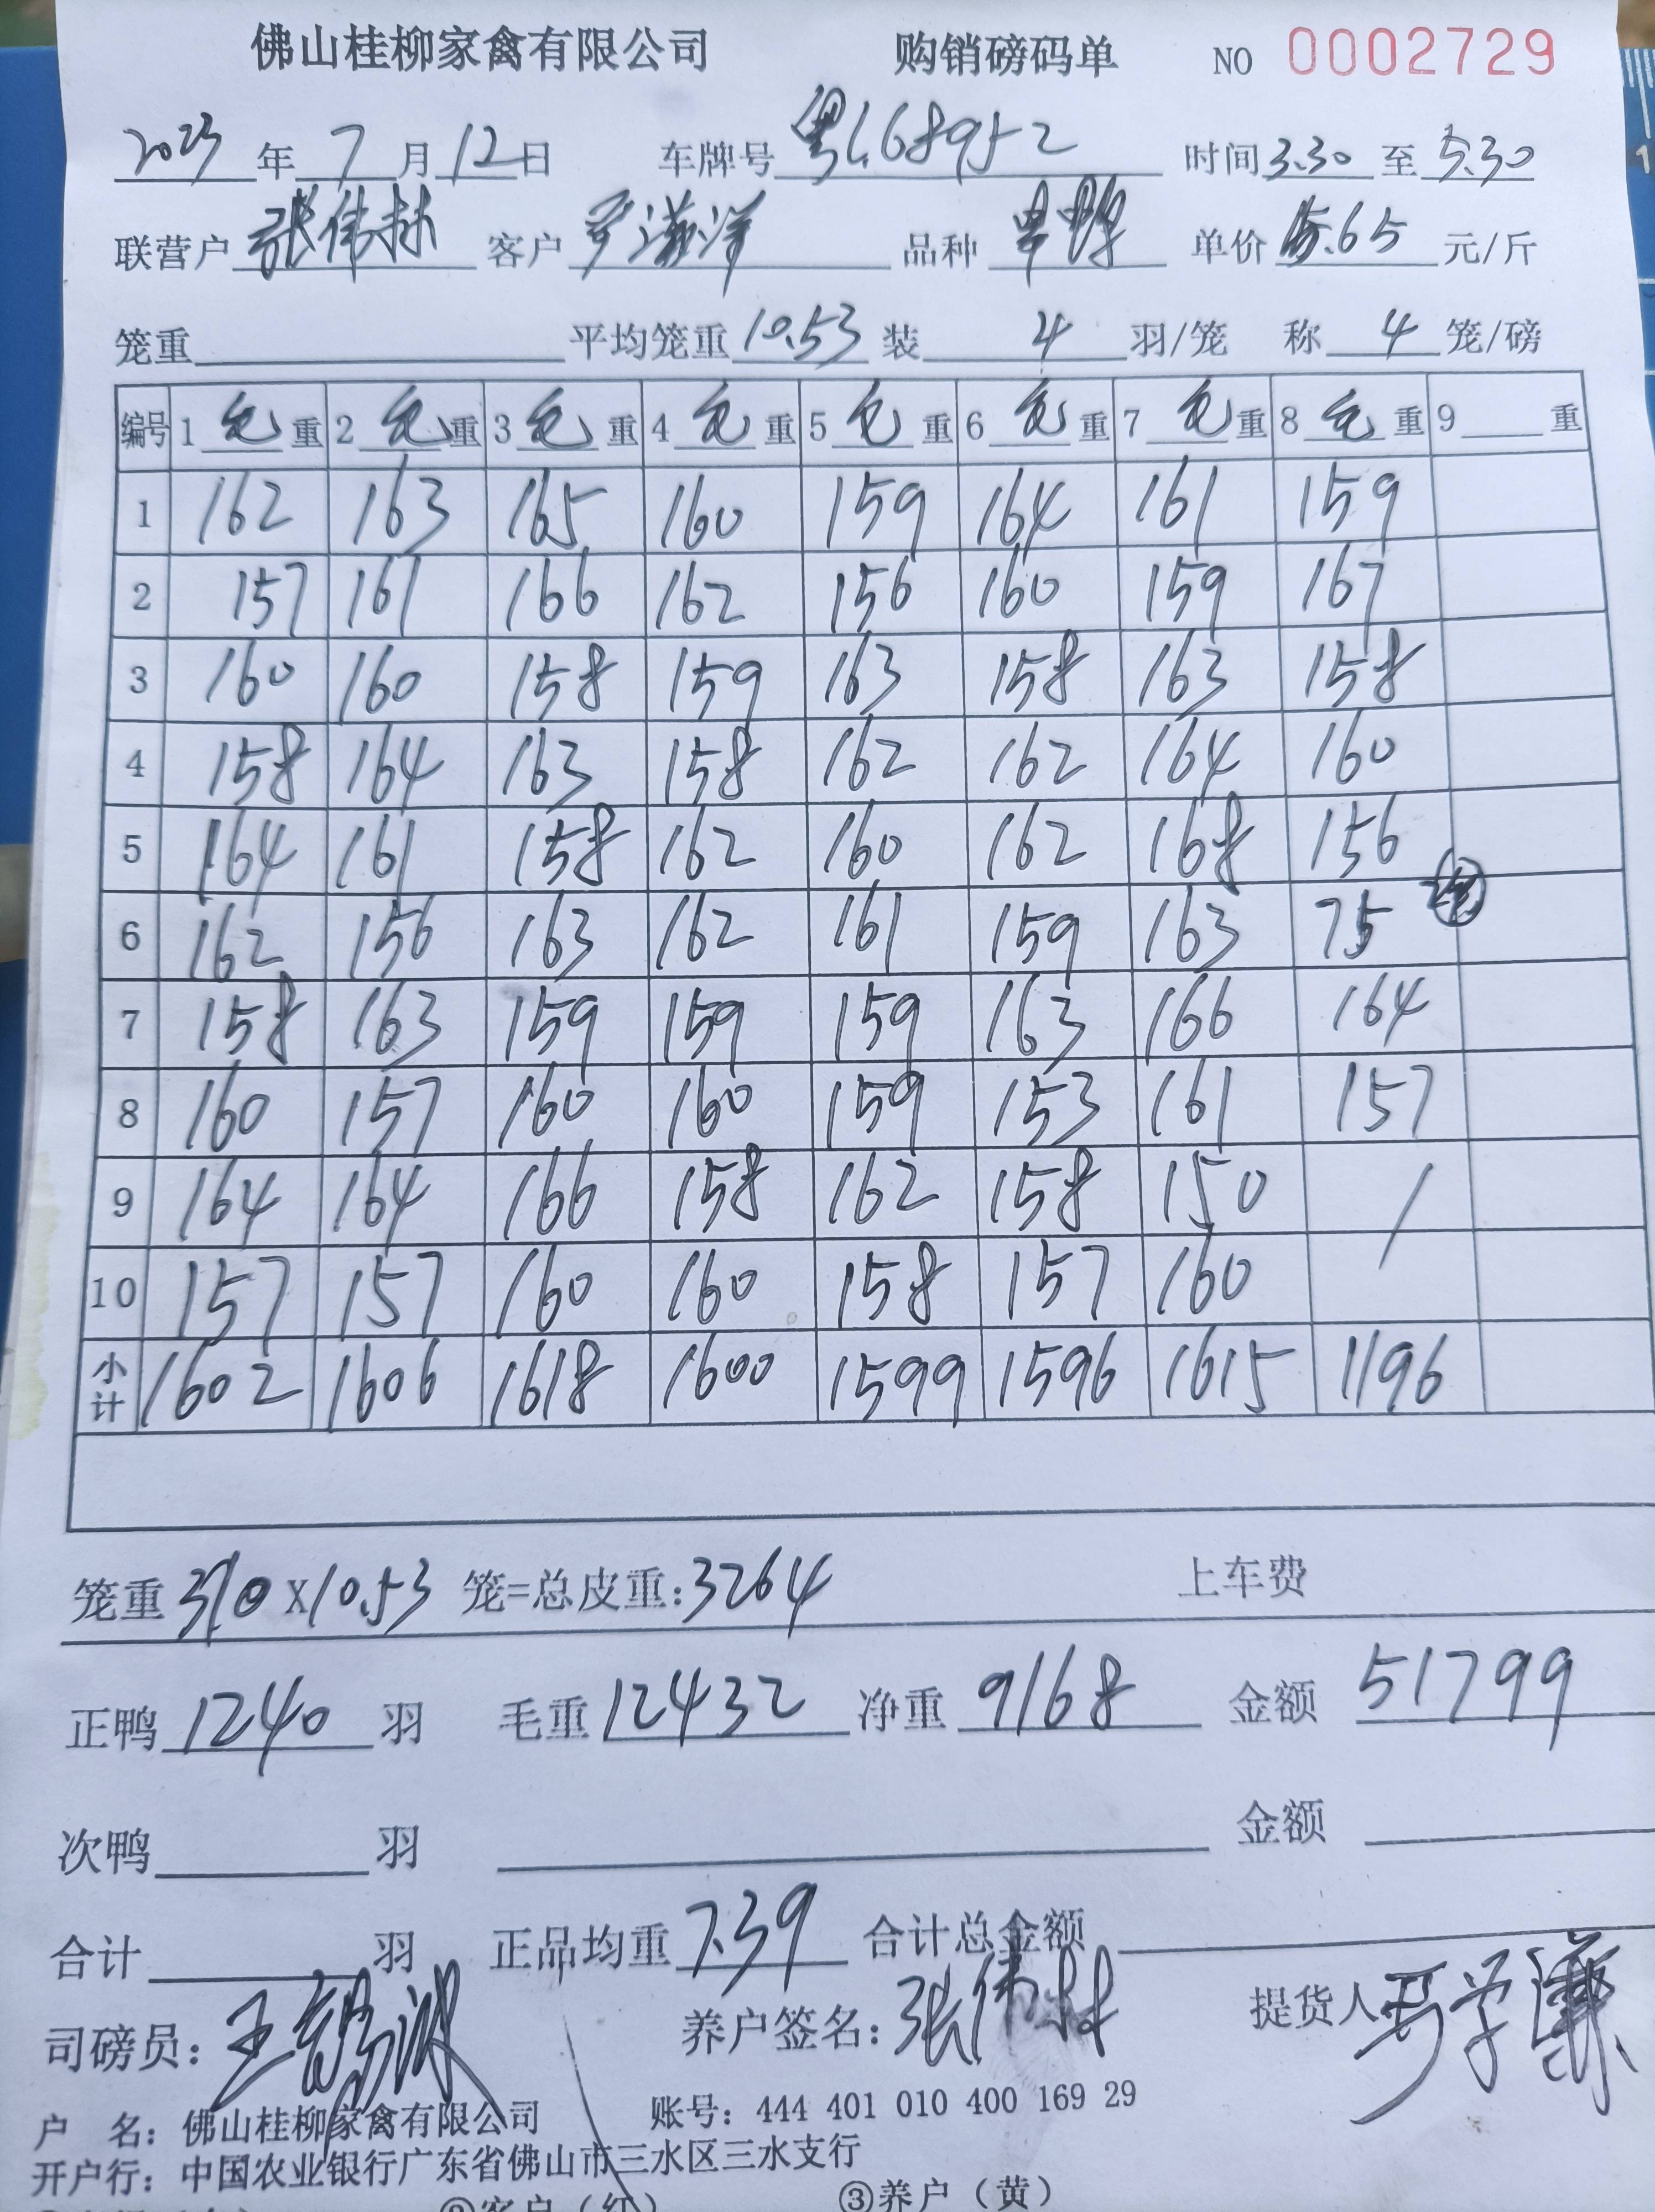 佛山桂柳家禽有限公司 购销磅码单 NO 0002729
2023年7月12日 车牌号 粤L68952 时间3.30至5.30
联营户 张伟林 客户 品种 单价 5.65 元/斤
笼重 平均笼重10.53 装 4 羽/笼 称 4 笼/磅
编号 1毛重 2毛重 3毛重 4毛重 5毛重 6毛重 7毛重 8毛重 9 重
1 162 163 165 160 159 164 161 159
2 157 161 166 162 156 160 159 167
3 160 160 158 159 163 158 163 158
4 158 164 163 158 162 162 164 160
5 164 161 158 162 160 162 168 156
6 162 156 163 162 161 159 163 75
7 158 163 159 159 159 163 166 164
8 160 157 160 160 159 153 161 157
9 164 164 166 158 162 158 150 /
10 157 157 160 160 158 157 160
小计 1602 1606 1618 1600 1599 1596 1615 1196
笼重310X10.53 笼=总皮重:3264 上车费
正鸭1240羽 毛重12432 净重9168 金额51799
次鸭 羽 金额
合计 羽 正品均重7.39 合计总金额
司磅员: 养户签名:张伟林 提货人
户 名: 佛山桂柳家禽有限公司 账号: 444 401 010 400 169 29
开户行: 中国农业银行广东省佛山市三水区三水支行
②客户(红) ③养户(黄)